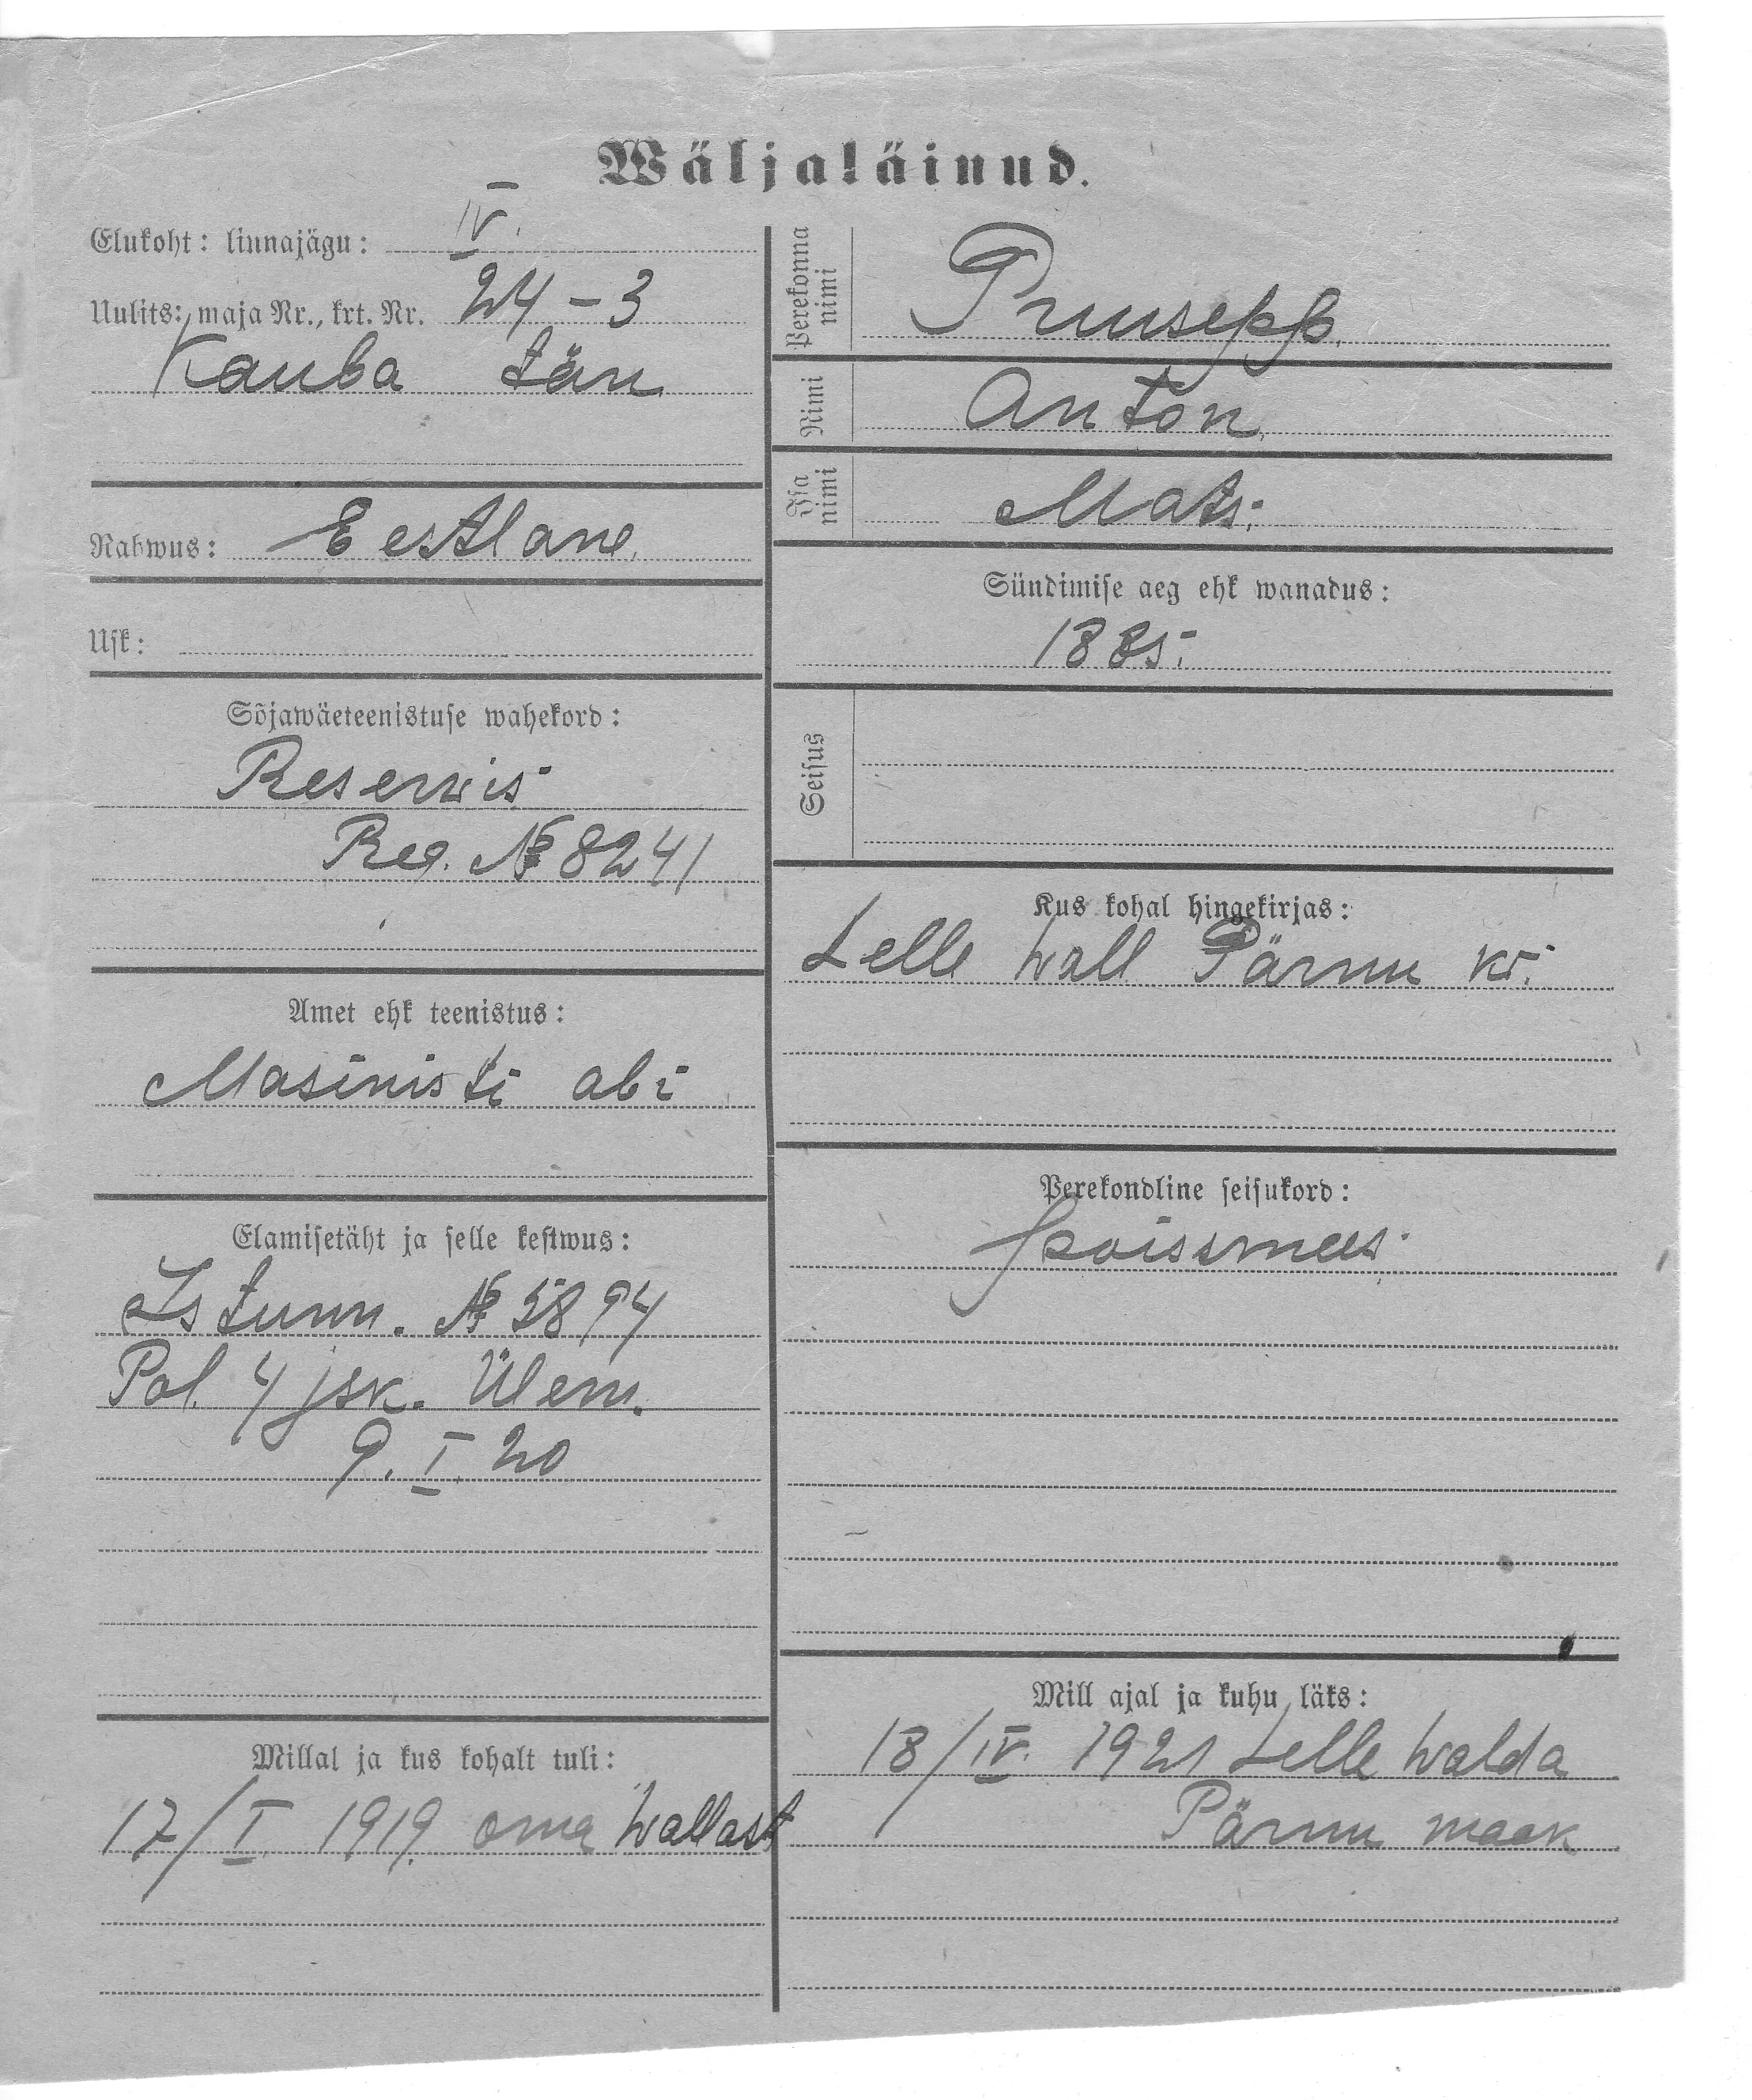 Wäljaläinud.
Elukoht: linnajägu: IV.
Uulits: maja Nr., krt. Nr. 24-3
Kauba tän
Rahwus: Eestlane
Usk:
Sõjawäeteenistuse wahekord:
Reserwis
Reg. № 8241
Amet ehk teenistus:
Masinisti abi
Elamisetäht ja selle kestwus:
Is tunn. № 5894
Pol. 4 jsk. Ülem.
9. I. 20
Millal ja kus kohalt tuli:
17/I 1919. oma wallast
Perekonna nimi Pruusepp.
Nimi Anton.
Isa nimi Mats.
Sündimise aeg ehk wanadus:
1885.
Seisus
Kus kohal hingekirjas:
Lelle wall Pärnu kr.
Perekondline seisukord:
poissmees.
Mill ajal ja kuhu läks:
18/IV. 1921 Lelle walda
Pärnu maak